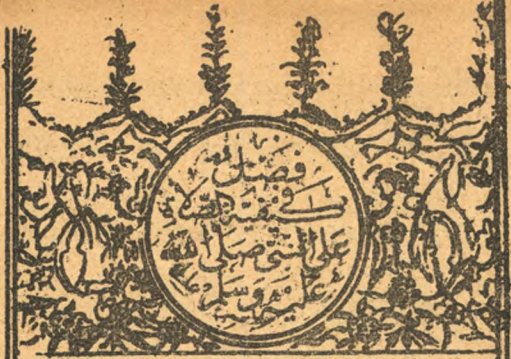 فصل
في كيفية الصلاة
على النبي صلى الله
عليه وسلم